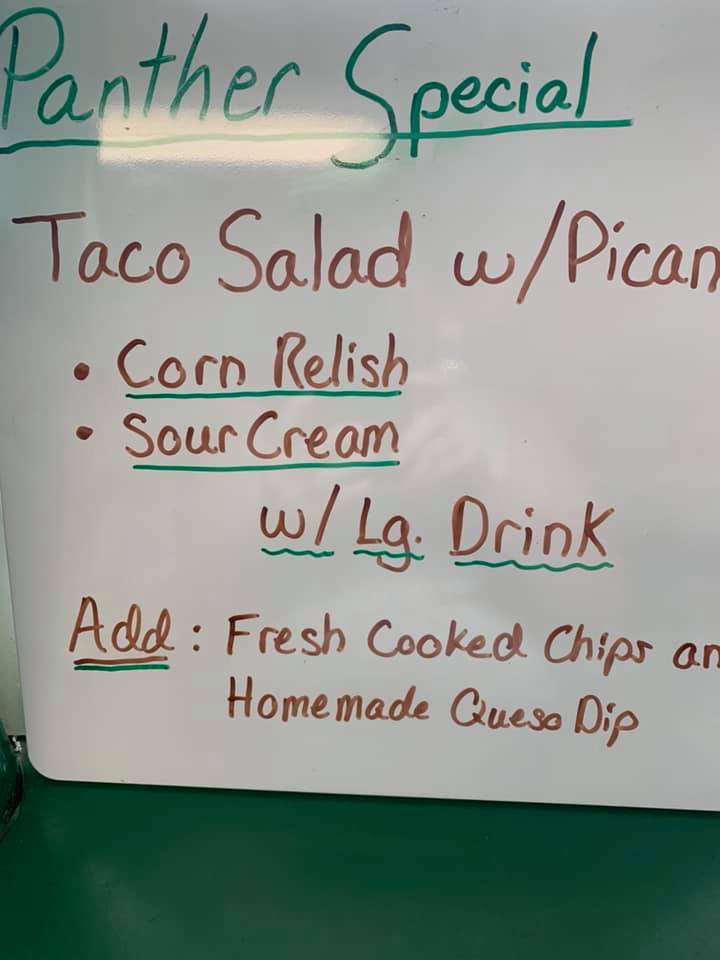 Panther Special
Taco Salad w/Pican
• Corn Relish
• Sour Cream
w/ Lg. Drink
Add: Fresh Cooked Chips an
Homemade Queso Dip